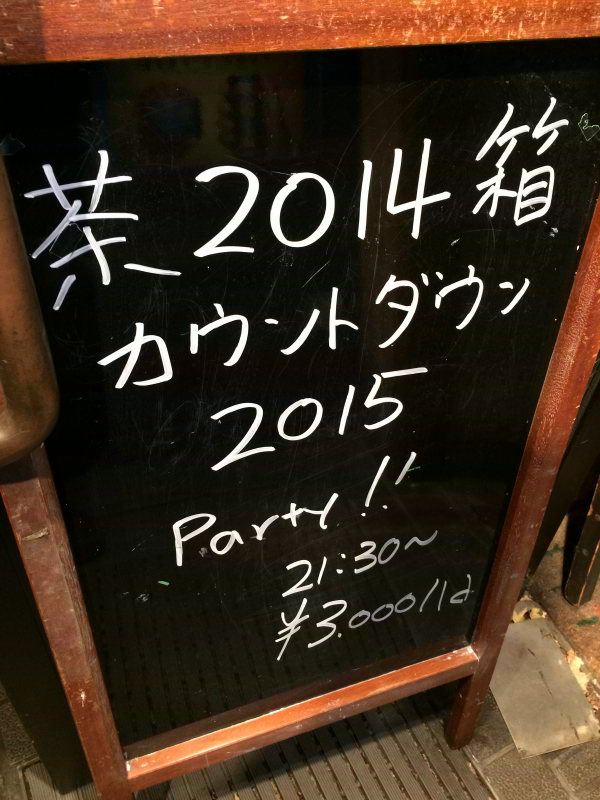 茶2014箱
カウントダウン
2015
Party!!
21:30~
¥3.000/1d